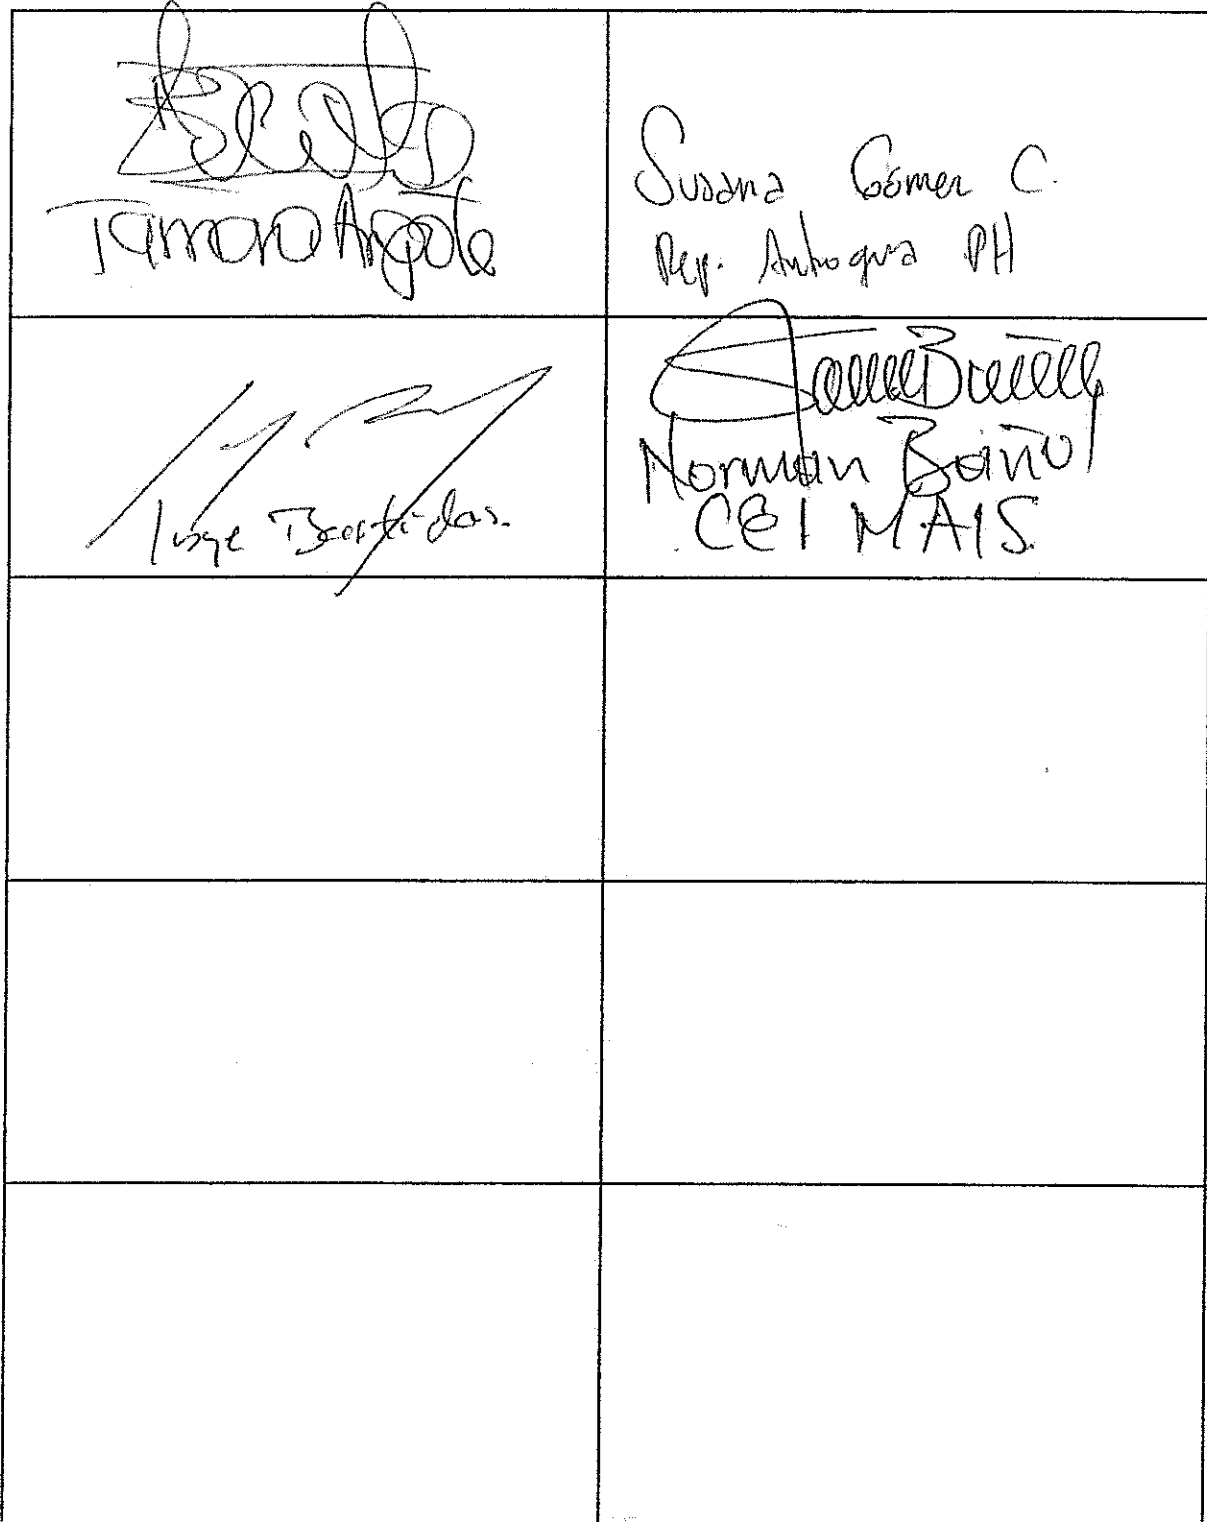 Tamara Argote
Susana Gómez C.
Rep. Antioquia PH
Jorge Bastidas.
Norman Bañol
CEI MAIS.